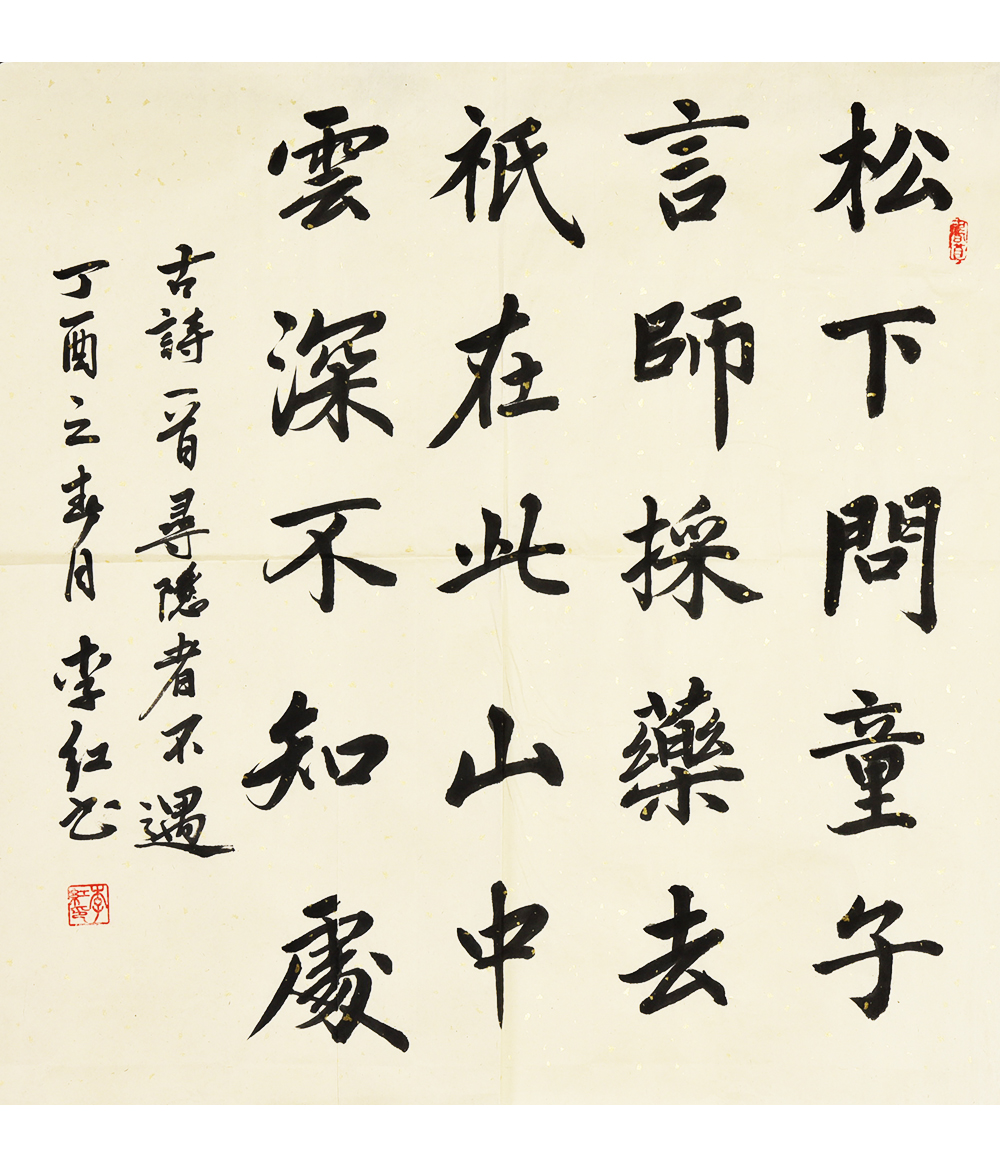 松下問童子
言師採藥去
祇在此山中
雲深不知處
古詩一首尋隱者不遇
丁酉之春月李红书
李红印